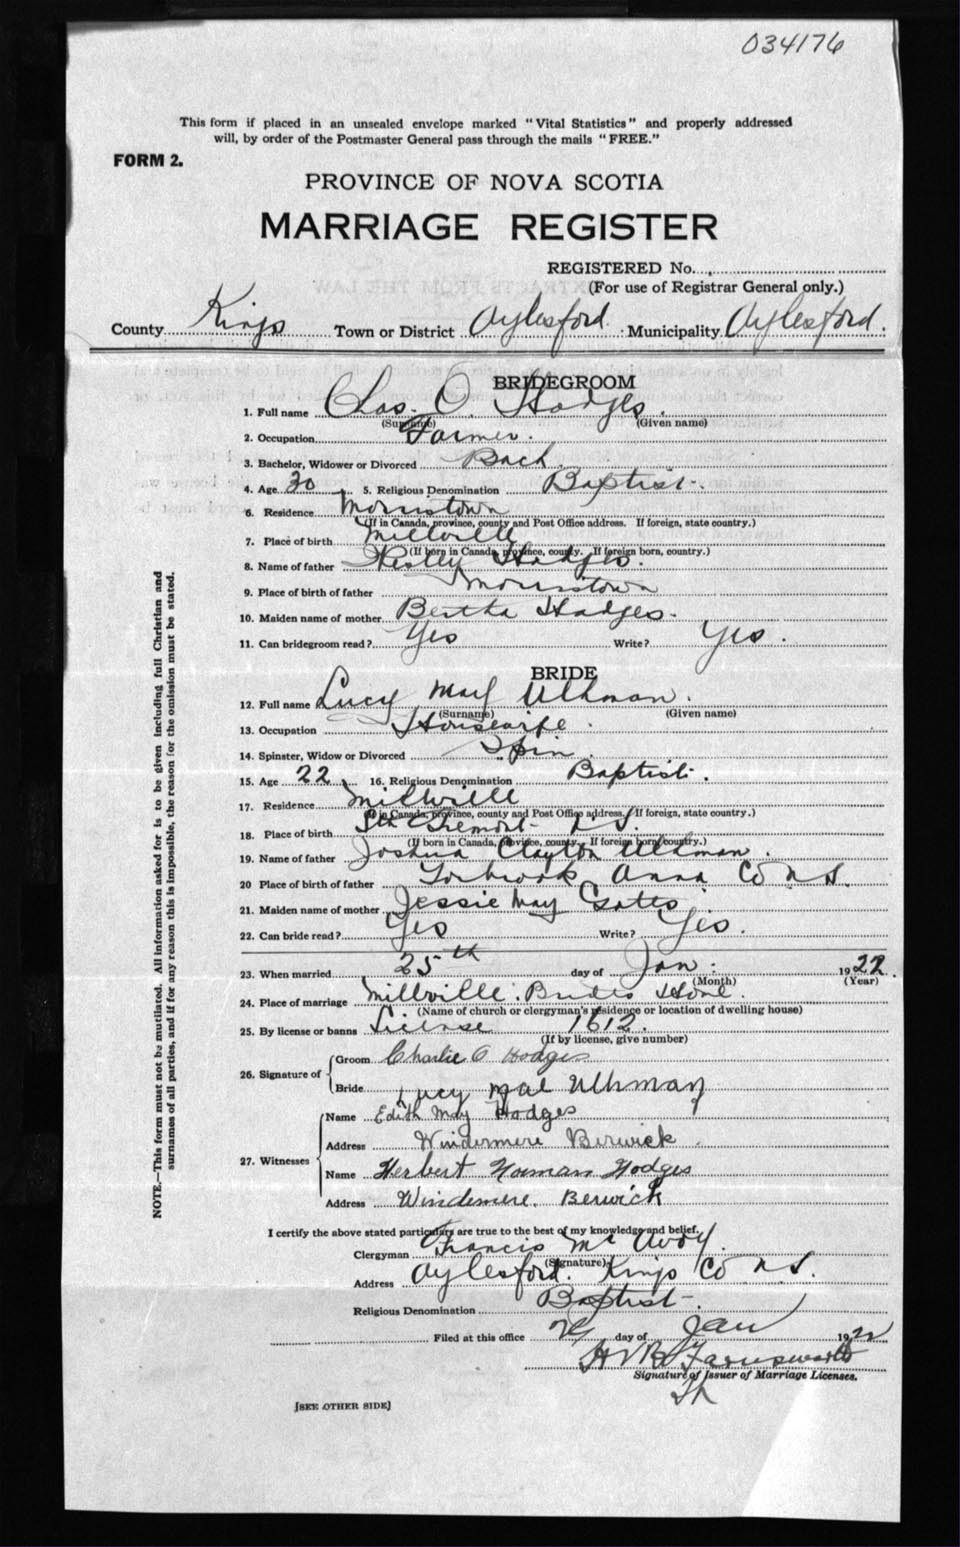 034176
This form if placed in an unsealed envelope marked "Vital Statistics" and properly addressed
will, by order of the Postmaster General pass through the mails "FREE."
FORM 2.
PROVINCE OF NOVA SCOTIA
MARRIAGE REGISTER
REGISTERED No.
(For use of Registrar General only.)
County Kings Town or District Aylesford Municipality Aylesford.
BRIDEGROOM
1. Full name Chas. O. Hodges.
(Surname) (Given name)
2. Occupation Farmer.
3. Bachelor, Widower or Divorced Bach.
4. Age 30 5. Religious Denomination Baptist.
6. Residence Morristown
(If in Canada, province, county and Post Office address. If foreign, state country.)
7. Place of birth Millville
(If born in Canada, province, county. If foreign born, country.)
8. Name of father Wesley Hodges.
9. Place of birth of father Morristown
10. Maiden name of mother Bertha Hodges.
11. Can bridegroom read? Yes Write? Yes.
BRIDE
12. Full name Lucy May Ulhman.
(Surname) (Given name)
13. Occupation Housewife.
14. Spinster, Widow or Divorced Spin.
15. Age 22 16. Religious Denomination Baptist.
17. Residence Millville
(If in Canada, province, county and Post Office address. If foreign, state country.)
18. Place of birth Tremont N S.
(If born in Canada, province, county. If foreign born, country.)
19. Name of father Joshua Clayton Ulhman.
20 Place of birth of father Torbrook Anna Co N S.
21. Maiden name of mother Jessie May Gates
22. Can bride read? Yes Write? Yes.
23. When married 25th day of Jan. 1922.
(Month) (Year)
24. Place of marriage Millville. Brides Home.
(Name of church or clergyman's residence or location of dwelling house)
25. By license or banns License 1612.
(If by license, give number)
26. Signature of
Groom Charlie O Hodges
Bride Lucy Mae Ulhman
27. Witnesses
Name Edith May Hodges
Address Windermere Berwick.
Name Herbert Norman Hodges
Address Windemere. Berwick
I certify the above stated particulars are true to the best of my knowledge and belief.
Clergyman Francis McAvoy.
(Signature)
Address Aylesford. Kings Co N S.
Religious Denomination Baptist
Filed at this office day of Jan 1922
H V B Farnsworth
Signature of Issuer of Marriage Licenses.
[SEE OTHER SIDE]
NOTE.—This form must not be mutilated. All information asked for is to be given including full Christian and
surnames of all parties, and if for any reason this is impossible, the reason for the omission must be stated.